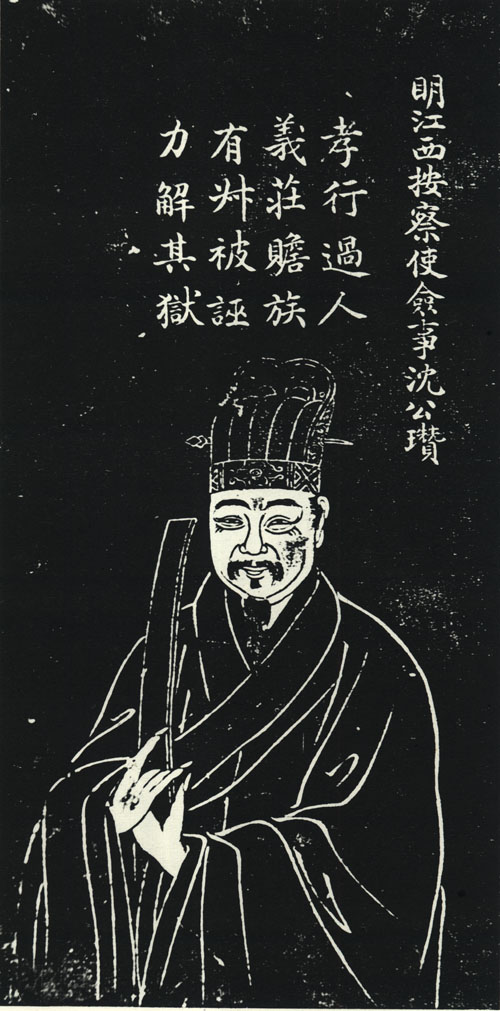 明江西按察使僉事沈公瓚
孝行過人
義莊贍族
有叔被誣
力解其獄